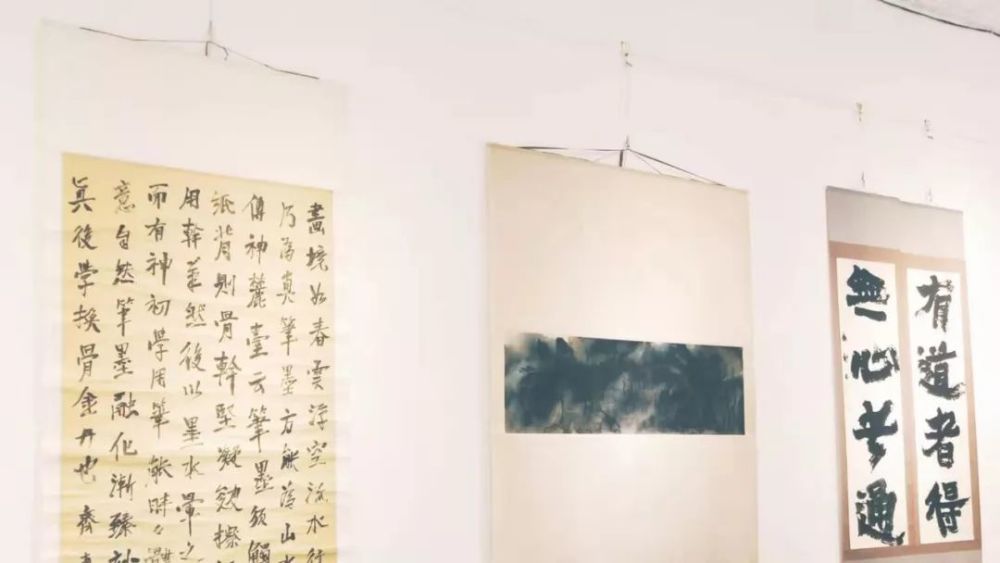 畫境如春雲浮空流水行
乃為真筆墨方能為山水
傳神麓臺云筆墨須觸
紙背則骨幹堅凝皴擦
用幹筆然後以墨水暈之
而有神初學用筆能時々
意自然筆墨融化漸臻妙
眞後學換骨金丹也齊
有道者得
無心者通